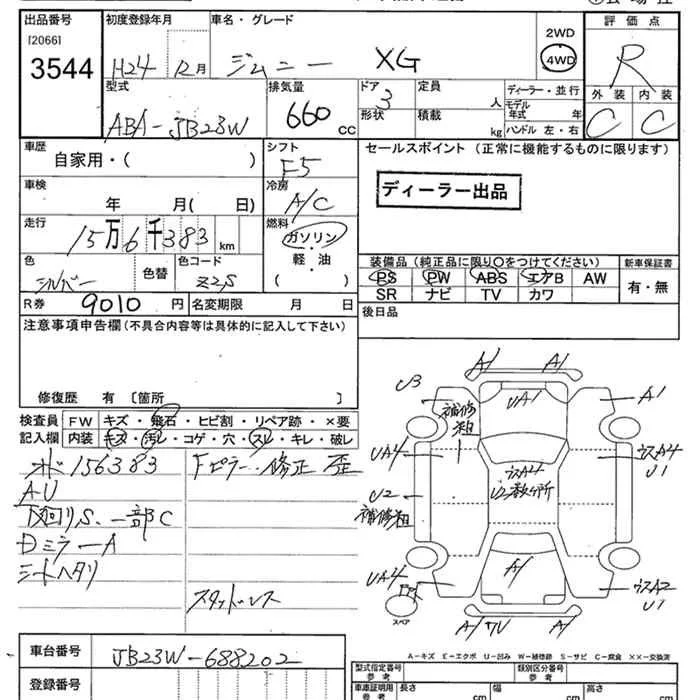 出品番号 初度登録年月 車名・グレード 評価点
[2066]
3544 H24 12月 ジムニー XG 2WD 4WD R
型式 排気量 ドア 定員 ディーラー・並行 外装 内装
ABA-JB23W 660 CC 3 人 モデル年式 年 C C
形状 積載 kg ハンドル 左・右
車歴 シフト セールスポイント (正常に機能するものに限ります)
自家用・( ) F5
車検 冷房 ディーラー出品
年 月( 日) A/C
走行 燃料
15万6千383 km ガソリン
色 色替 色コード 軽・油 装備品 (純正品に限り○をつけてください) 新車保証書
シルバー Z2S ( ) PS PW ABS エアB AW 有・無
R券 9010 円 名変期限 月 日 SR ナビ TV カワ
注意事項申告欄 (不具合内容等は具体的に記入して下さい) 後日品
修復歴 有 〔箇所 〕
検査員 FW キズ・飛石・ヒビ割・リペア跡・×要
記入欄 内装 キズ・汚レ・コゲ・穴・スレ・キレ・破レ
オド156383 Fピラー修正 歪
AU
下回りS、一部C
DミラーA
シートヘタリ
スタッドレス
A/ A/
U3 補修 UA1 A1
粗
UA4 ウスA4
U1
U2 ウスA4
補修粗 U2数ヶ所
UA4 A/ ウスA2
U1
スペア A/ W A/
A-キズ E-エクボ U-凹み W-補修跡 S-サビ C-腐食 ××-交換済
車台番号 JB23W-688202 型式指定番号 参考 類別区分番号 参考
登録番号 車庫証明用 参考 長さ cm 幅 cm 高さ cm